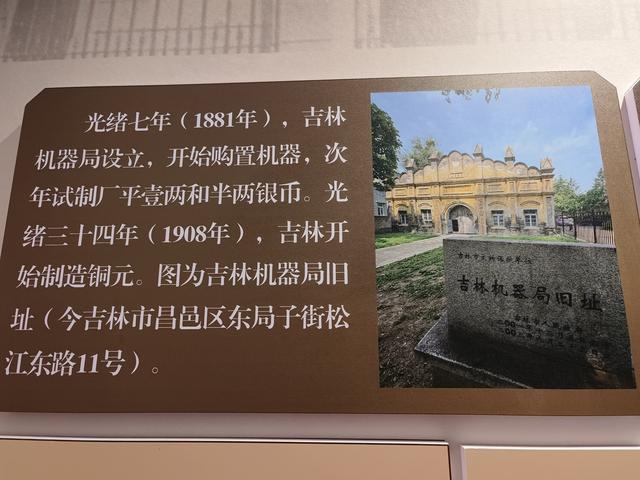 光绪七年（1881年），吉林
机器局设立，开始购置机器，次
年试制厂平壹两和半两银币。光
绪三十四年（1908年），吉林开
始制造铜元。图为吉林机器局旧
址（今吉林市昌邑区东局子街松
江东路11号）。
吉林市文物保护单位
吉林机器局旧址
吉林市人民政府